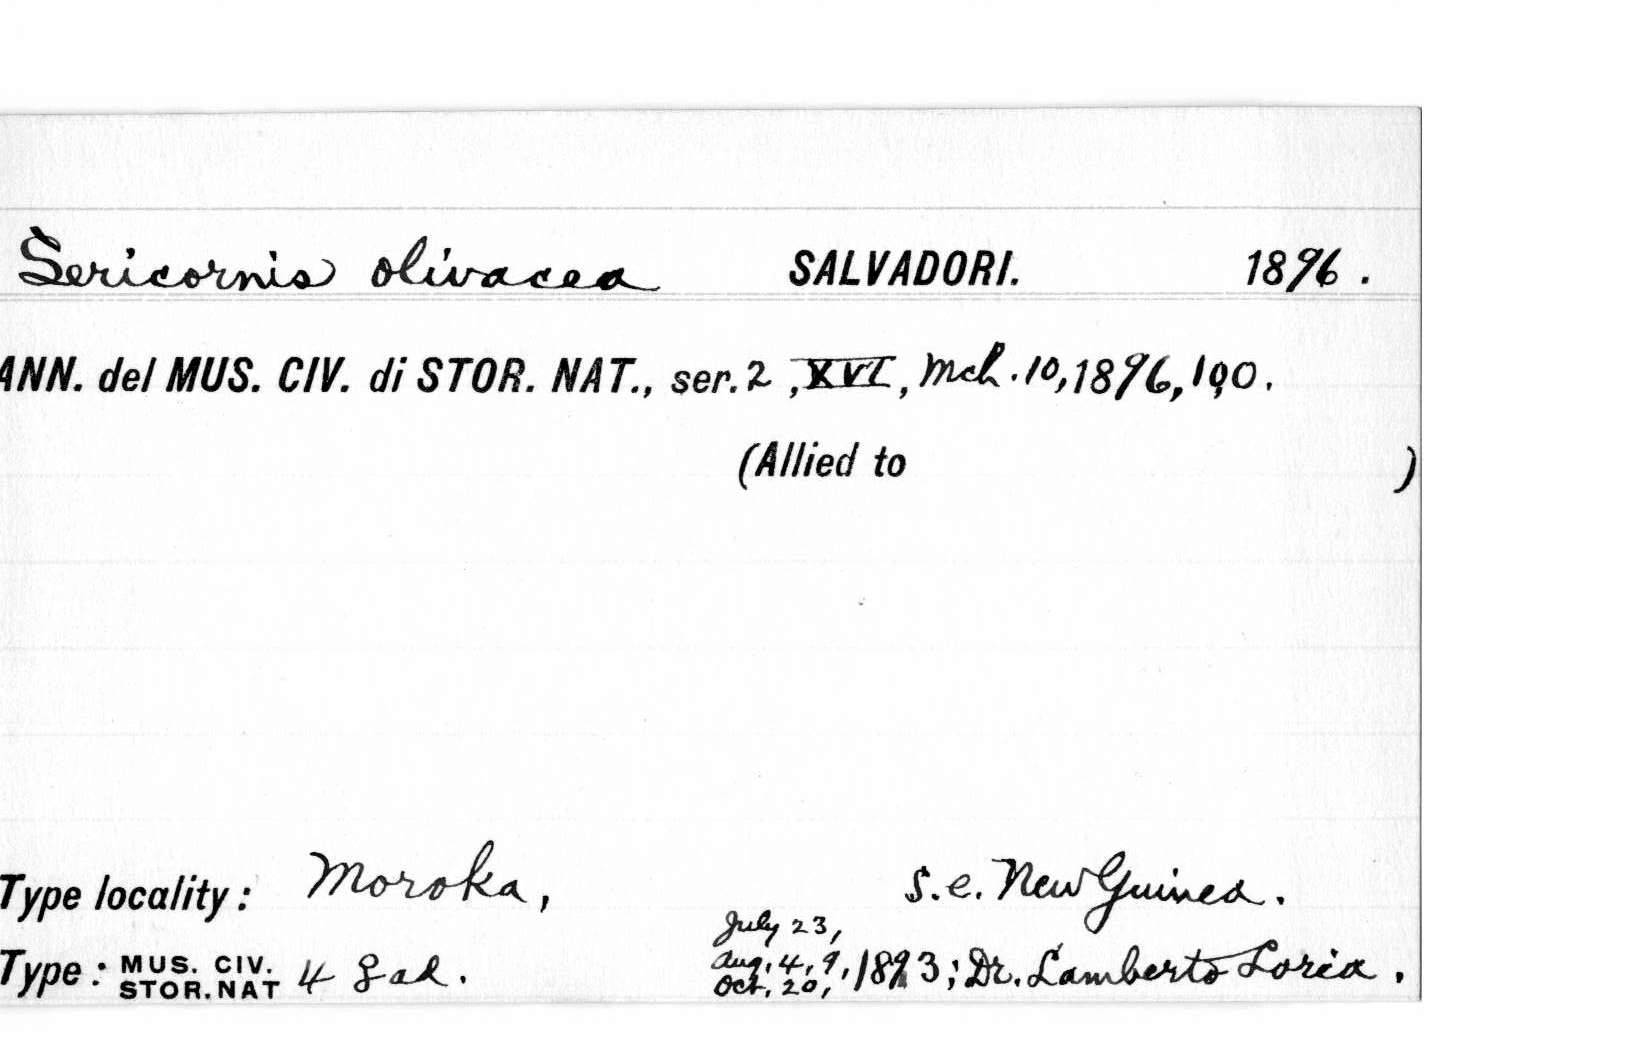 Sericornis olivacea SALVADORI. 1896.
ANN. del MUS. CIV. di STOR. NAT., ser. 2, XVI, Mch. 10, 1896, 100.
(Allied to )
Type locality: Moroka, S.E. New Guinea.
July 23,
Type: MUS. CIV. 4 ad. Aug. 4, 9, 1893; Dr. Lamberto Loria.
STOR. NAT Oct. 20,